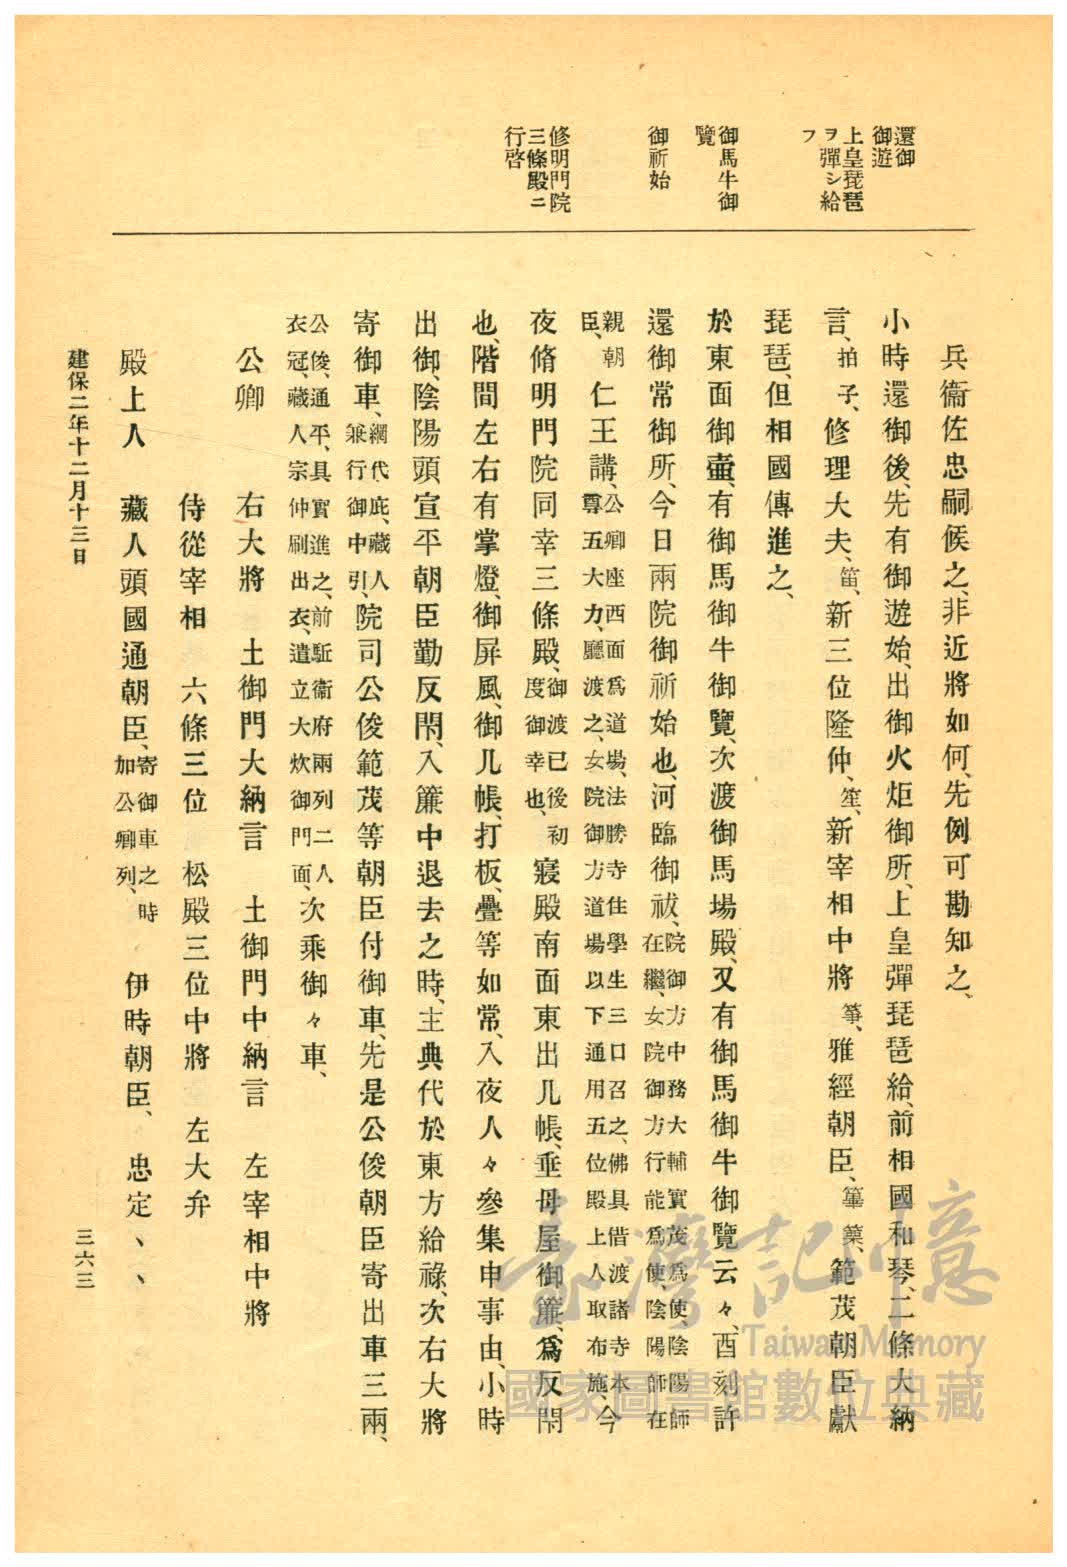 還御
御遊
上皇琵琶
ヲ彈シ給
フ
御馬牛御
覽
御祈始
修明門院
三條殿ニ
行啓
兵衞佐忠嗣候之、非近將如何、先例可勘知之、
小時還御後、先有御遊始、出御火炬御所、上皇彈琵琶給、前相國和琴、二條大納
言、拍子、修理大夫、笛、新三位隆仲、笙、新宰相中將箏、雅經朝臣、篳篥、範茂朝臣獻
琵琶、但相國傳進之、
於東面御壷、有御馬御牛御覽、次渡御馬場殿、又有御馬御牛御覽云々、酉刻許
還御常御所、今日兩院御祈始也、河臨御祓、院御方中務大輔實茂爲使、陰陽師在繼、女院御方行能爲使、陰陽師在
親朝臣、仁王講、公卿座西面爲道場、法勝寺住學生三口召之、佛具借渡諸寺本尊五大力、廳渡之、女院御方道場以下通用五位殿上人取布施、今
夜脩明門院同幸三條殿、御渡已後初度御幸也、寢殿南面東出几帳、垂母屋御簾、爲反閇
也、階間左右有掌燈、御屏風、御几帳、打板、疊等如常、入夜人々參集申事由、小時
出御、陰陽頭宣平朝臣勤反閇、入簾中退去之時、主典代於東方給祿、次右大將
寄御車、網代庇、藏人兼行御中引、院司公俊範茂等朝臣付御車、先是公俊朝臣寄出車三兩、
公俊、通平、具實進之、前駈衞府兩列二人衣冠、藏人宗仲刷出衣、遣立大炊御門面、次乘御々車、
公卿　右大將　土御門大納言　土御門中納言　左宰相中將
侍從宰相　六條三位　松殿三位中將　左大弁
殿上人　藏人頭國通朝臣、寄御車之時加公卿列、　伊時朝臣、　忠定、、、
建保二年十二月十三日
三六三
臺灣記憶
Taiwan Memory
國家圖書館數位典藏